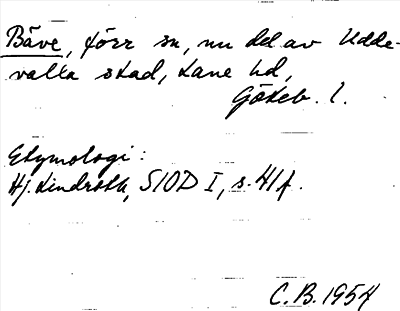 Bäve, förr sn, nu del av Udde-
valla stad, Lane hd,
Göteb. l.
Etymologi:
Hj. Lindroth, SIOD I, s. 41f.
C.B. 1954